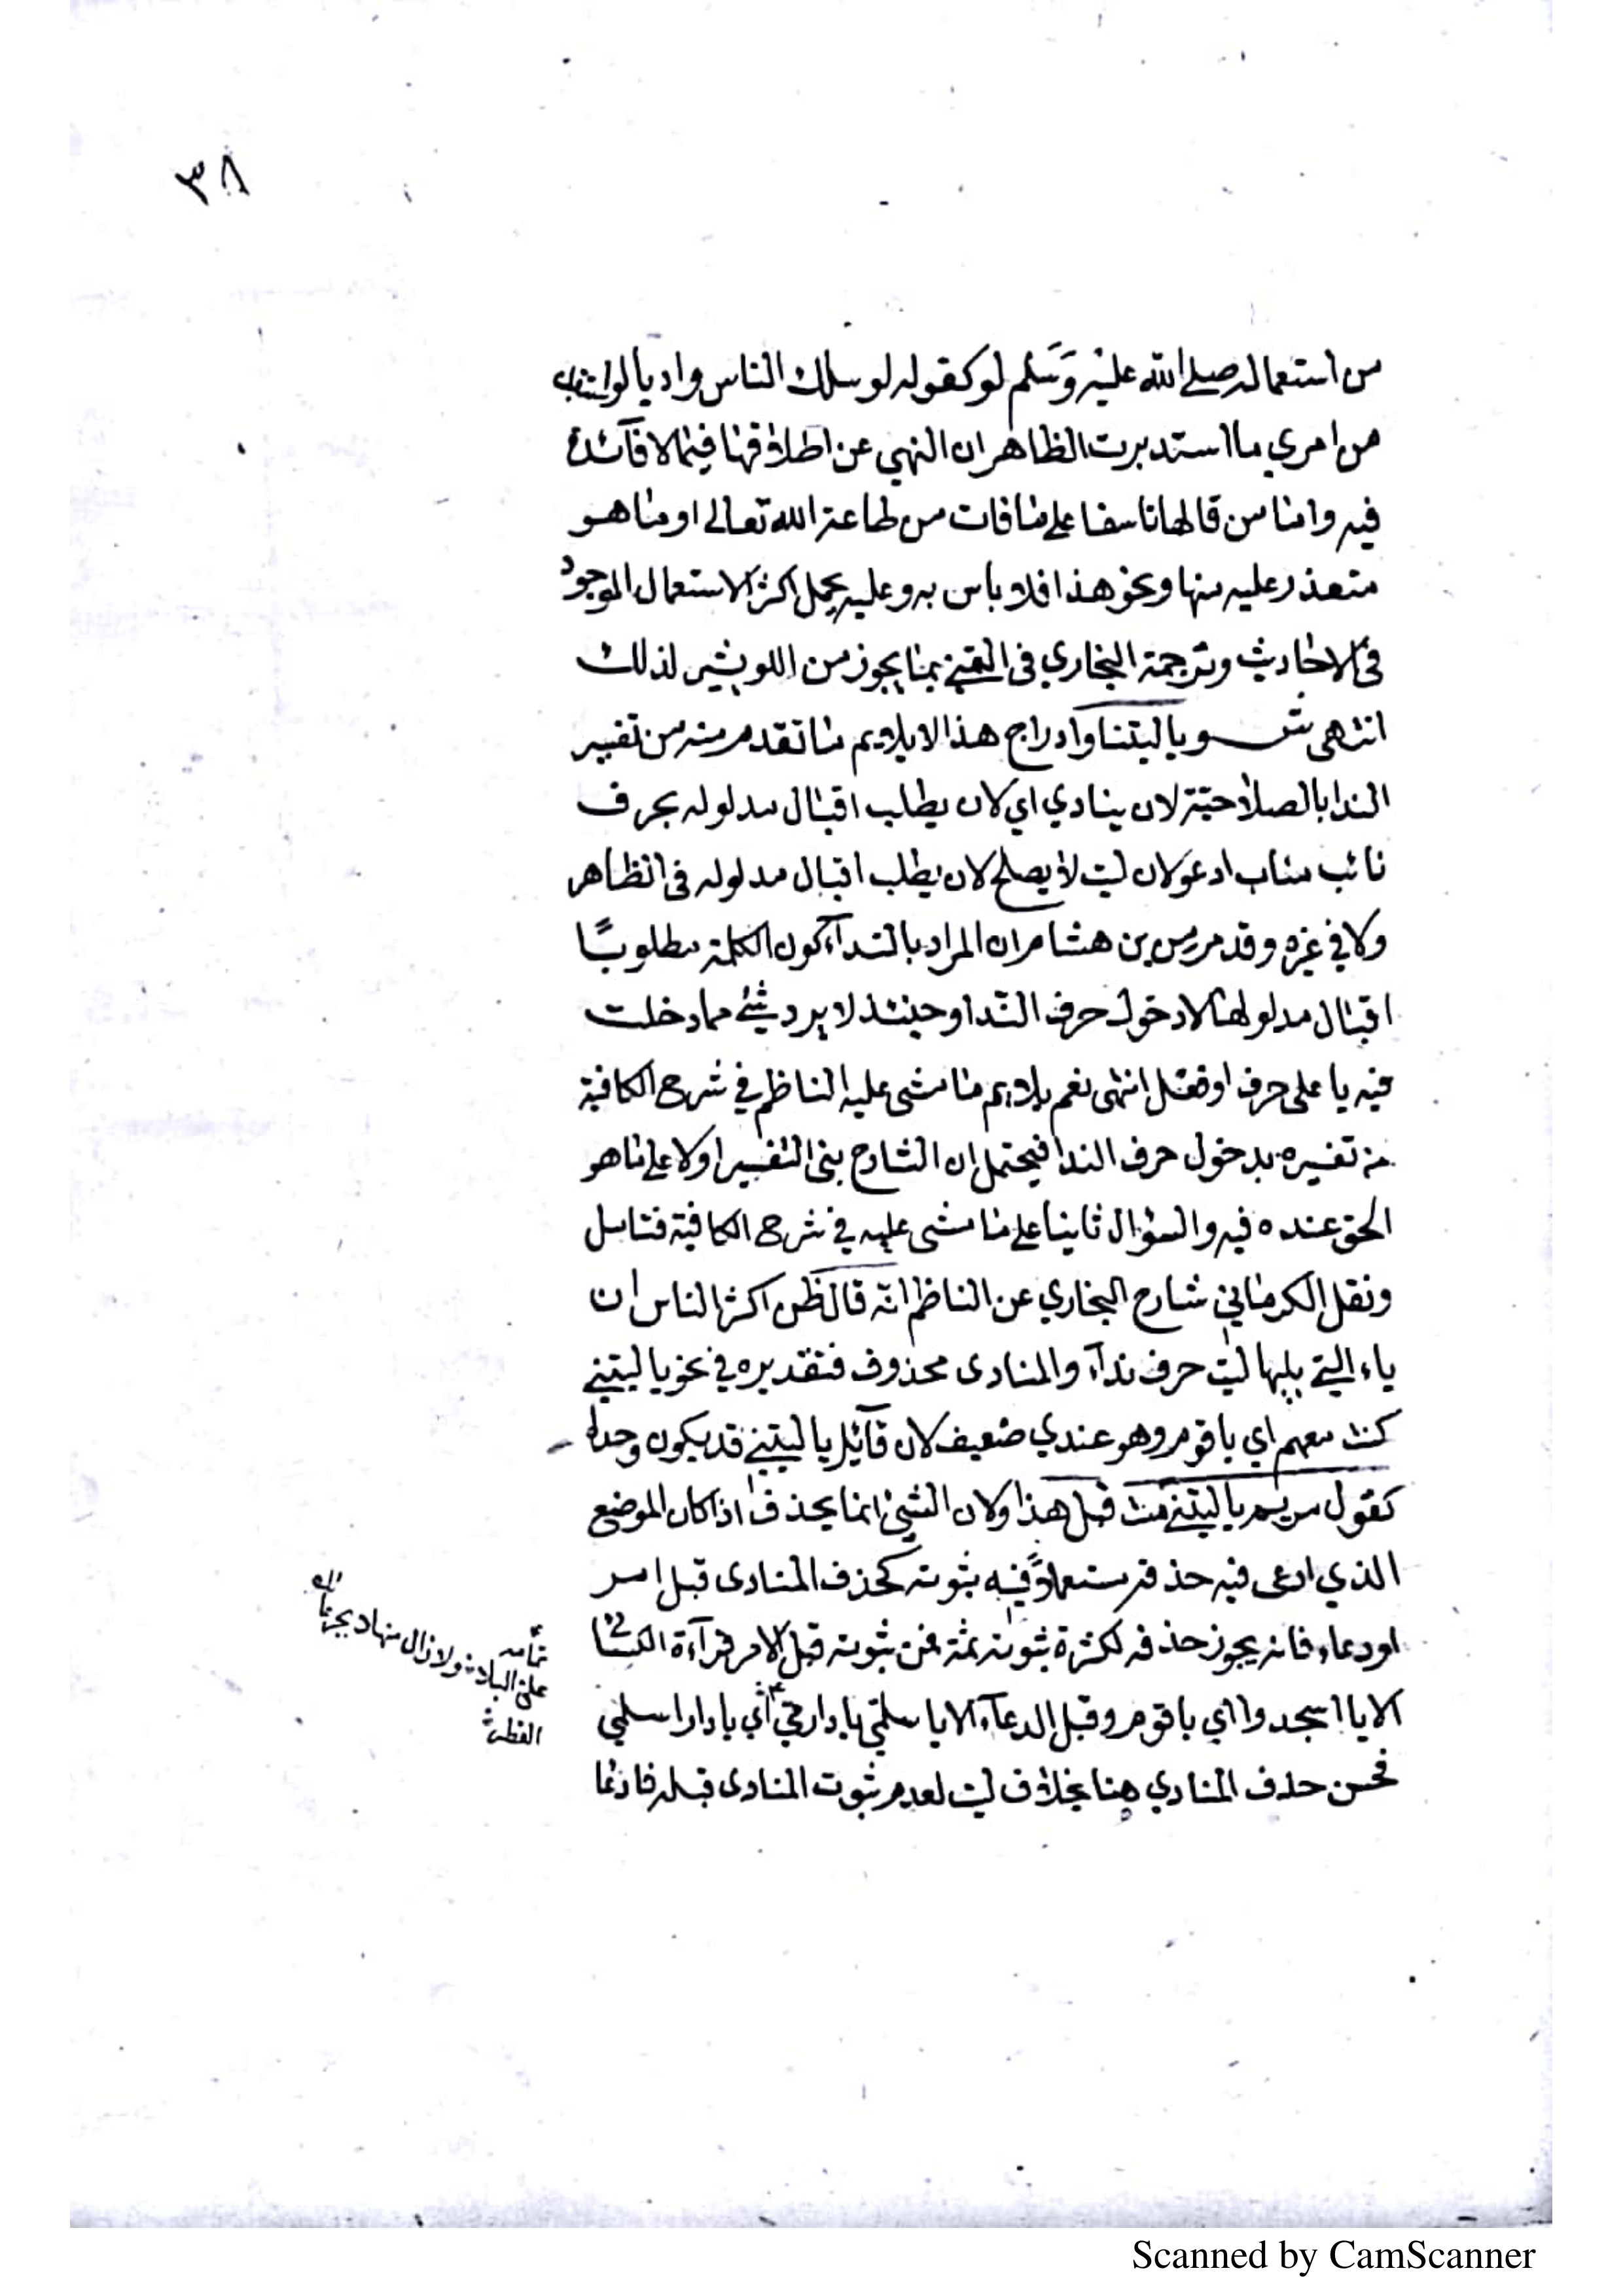 ٣٨
من استعماله صلي الله عليه وَسَلم لو كقوله لو سلك الناس واديا لو استقبلت
من امري ما استدبرت الظاهران النهي عن اطلاقها فيما لا فآئدة
فيه وامّا من قالها تاسفا علي مافات من طاعة الله تعالي او ما هو
متعذر عليه منها ونحو هذا فلا بأس به وعليه يحمل اكثر الاستعمال الموجود
في الاحاديث وترجمة البخاري في التمني بما يجوز من اللو يشير لذلك
انتهي ش و يا ليتنا وادراج هذا لا يلايم ما تقدم منه من تفسير
الندا بالصلاحيّة لان ينادي اي لان يطلب اقبال مدلوله بحرف
نائب مناب ادعو لان ليت لا يصلح لان يطلب اقبال مدلوله في الظاهر
ولا في غيره وقد مر عن بن هشام ان المراد بالندآء كون الكلمة مطلوبًا
اقبال مدلولها لا دخول حرف النّدا وحينئذ لا يرد شئ مما دخلت
فيه يا على حرف او فعل انتهى نعم يلايم ما مشى عليه الناظم في شرح الكافية
من تفسيره بدخول حرف الندا فيحتمل ان الشارح بنى التفسير اولا علي ما هو
الحق عنده فيه والسؤال ثانيا علي ما مشى عليه في شرح الكافية فتامل
ونقل الكرماني شارح البخاري عن الناظم انّه قال ظن اكثر الناس ان
ياء التي يليها ليت حرف ندآء والمنادى محذوف فتقديره في نحو يا ليتني
كنت معهم اي يا قوم وهو عندي ضعيف لان قآئل يا ليتني قد يكون وحده
كقول مريم يا ليتني مت قبل هذا ولان الشئ انما يحذف اذا كان الموضع
الذي ادعى فيه حذفه مستعملا فيه ثبوته كحذف المنادى قبل امر
او دعاء فانه يجوز حذفه لكثرة ثبوته ثمة فمن ثبوته قبل الامر قرآءة الكسائي
الا يا اسجدوا اي يا قوم وقبل الدعآء الا يا سلمي يا دار مي اي يا دار اسلمي
فحسن حذف المنادي هنا بخلاف ليت لعدم ثبوت المنادى قبله فادعا
تمامه
على البلا ولا زال منهلا بجرعائك
القطر
Scanned by CamScanner